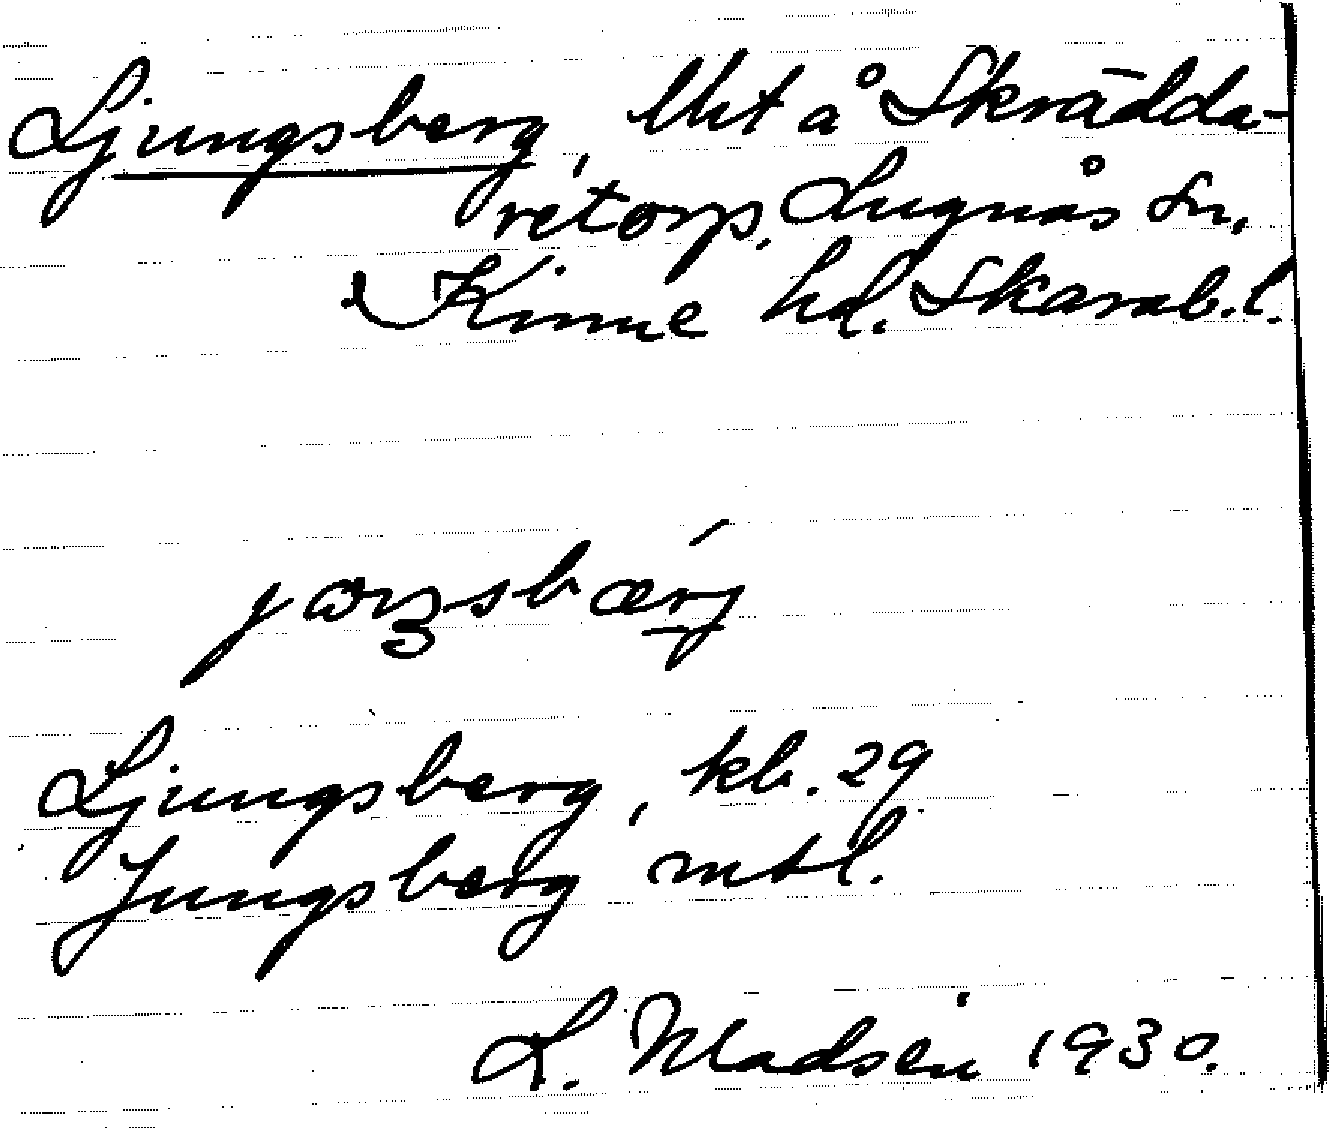 Ljungsberg, lht å Skrädda-
retorp, Lugnås sn,
Kinne hd. Skarab. l.
Ljungsberg, kb. 29
Jungsberg mtl.
L. Madsén 1930.